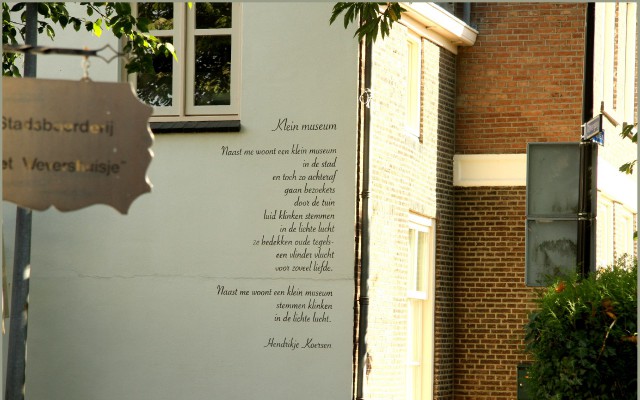 Stadsboerderij
et Wevershuisje"
Klein museum
Naast me woont een klein museum
in de stad
en toch zo achteraf
gaan bezoekers
door de tuin
luid klinken stemmen
in de lichte lucht
ze bedekken oude tegels-
een vlinder vlucht
voor zoveel liefde.
Naast me woont een klein museum
stemmen klinken
in de lichte lucht.
Hendrikje Koersen